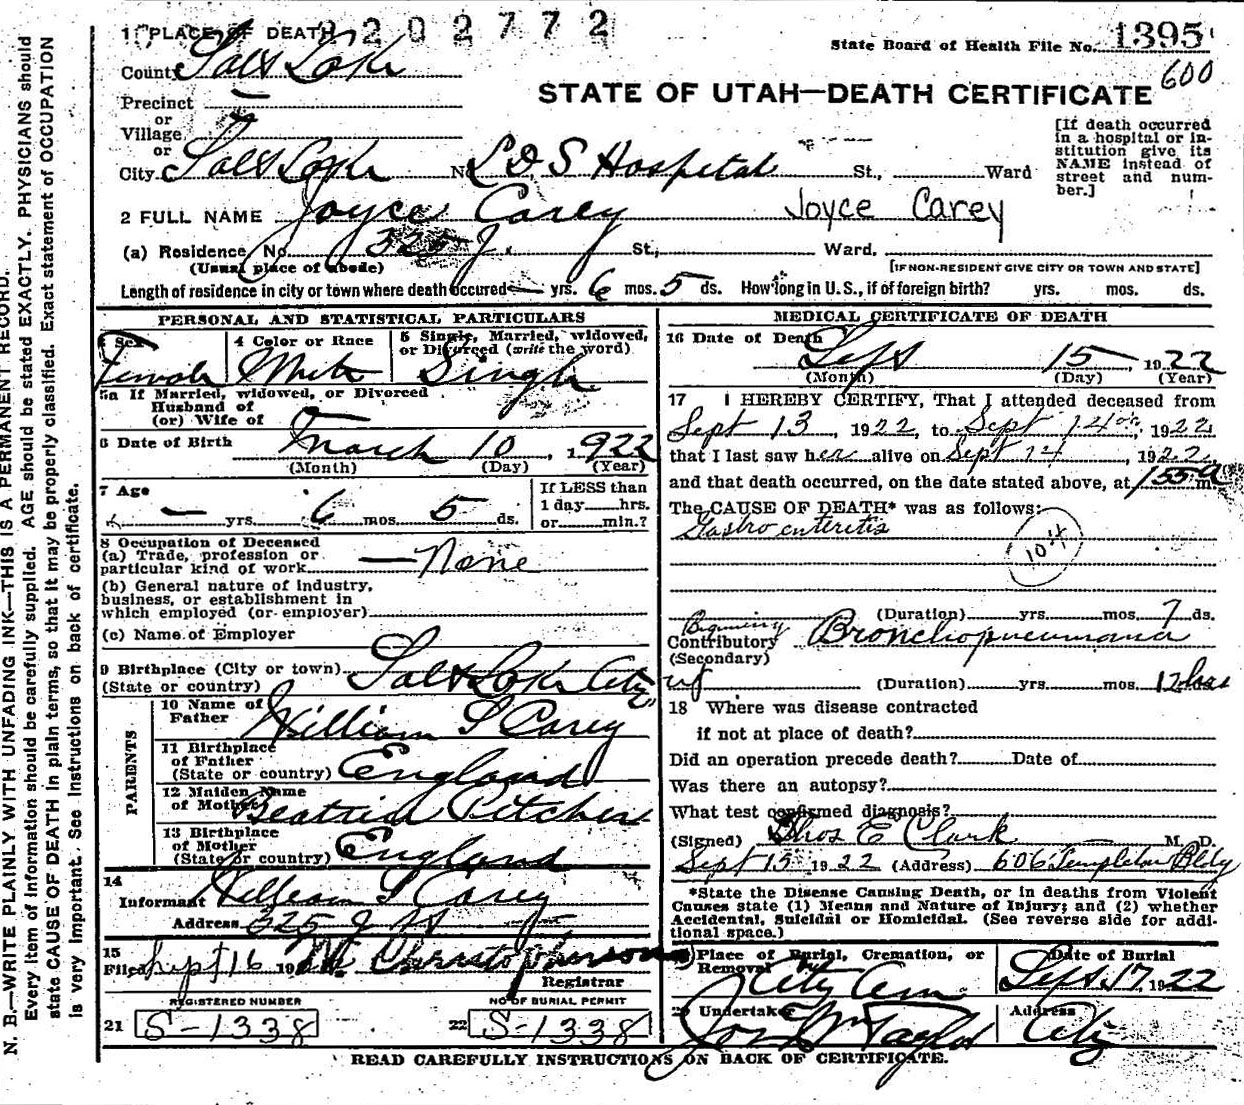 N. B.—WRITE PLAINLY WITH UNFADING INK—THIS IS A PERMANENT RECORD.
Every item of information should be carefully supplied. AGE should be stated EXACTLY. PHYSICIANS should
state CAUSE OF DEATH in plain terms, so that it may be properly classified. Exact statement of OCCUPATION
is very important. See Instructions on back of certificate.
1 PLACE OF DEATH 202772
State Board of Health File No. 1395
600
County Salt Lake
STATE OF UTAH—DEATH CERTIFICATE
Precinct —
or
Village —
or
City Salt Lake No. L D S Hospital St., Ward
[If death occurred
in a hospital or in-
stitution give its
NAME instead of
street and num-
ber.]
2 FULL NAME Joyce Carey Joyce Carey
(a) Residence No. 325 J. St., Ward.
(Usual place of abode) [IF NON-RESIDENT GIVE CITY OR TOWN AND STATE]
Length of residence in city or town where death occured — yrs. 6 mos. 5 ds. How long in U. S., if of foreign birth? yrs. mos. ds.
PERSONAL AND STATISTICAL PARTICULARS
3 Sex Female
4 Color or Race White
5 Single, Married, widowed,
or Divorced (write the word) Single
5a If Married, widowed, or Divorced
Husband of
(or) Wife of —
6 Date of Birth March 10, 1922
(Month) (Day) (Year)
7 Age — yrs. 6 mos. 5 ds.
If LESS than
1 day hrs.
or min.?
8 Occupation of Deceased
(a) Trade, profession or
particular kind of work — None
(b) General nature of industry,
business, or establishment in
which employed (or employer)
(c) Name of Employer
9 Birthplace (City or town) Salt Lake City
(State or country)
PARENTS
10 Name of
Father William S Carey
11 Birthplace
of Father
(State or country) England
12 Maiden Name
of Mother Beatrice Pitcher
13 Birthplace
of Mother
(State or country) England
14
Informant William S Carey
Address 325 J St
15
Filed Sept 16 19 Christopherson
Registrar
REGISTERED NUMBER
21 S-1338
NO OF BURIAL PERMIT
22 S-1338
MEDICAL CERTIFICATE OF DEATH
16 Date of Death Sept 15, 1922
(Month) (Day) (Year)
17 I HEREBY CERTIFY, That I attended deceased from
Sept 13, 1922, to Sept 14, 1922
that I last saw her alive on Sept 14, 1922
and that death occurred, on the date stated above, at 155 a m.
The CAUSE OF DEATH* was as follows:
Gastro enteritis
104
(Duration) yrs. mos. 7 ds.
Beginning
Contributory Bronchopneumonia
(Secondary)
(Duration) yrs. mos. 12 hrs
18 Where was disease contracted
if not at place of death?
Did an operation precede death? Date of
Was there an autopsy?
What test confirmed diagnosis?
(Signed) Thos E Clark M. D.
Sept 15 1922 (Address) 606 Templeton Bldg
*State the Disease Causing Death, or in deaths from Violent
Causes state (1) Means and Nature of Injury; and (2) whether
Accidental, Suicidal or Homicidal. (See reverse side for addi-
tional space.)
Place of Burial, Cremation, or
Removal City Cem
Date of Burial
Sept 17 1922
Undertaker Jos Wm Taylor
Address City
READ CAREFULLY INSTRUCTIONS ON BACK OF CERTIFICATE.